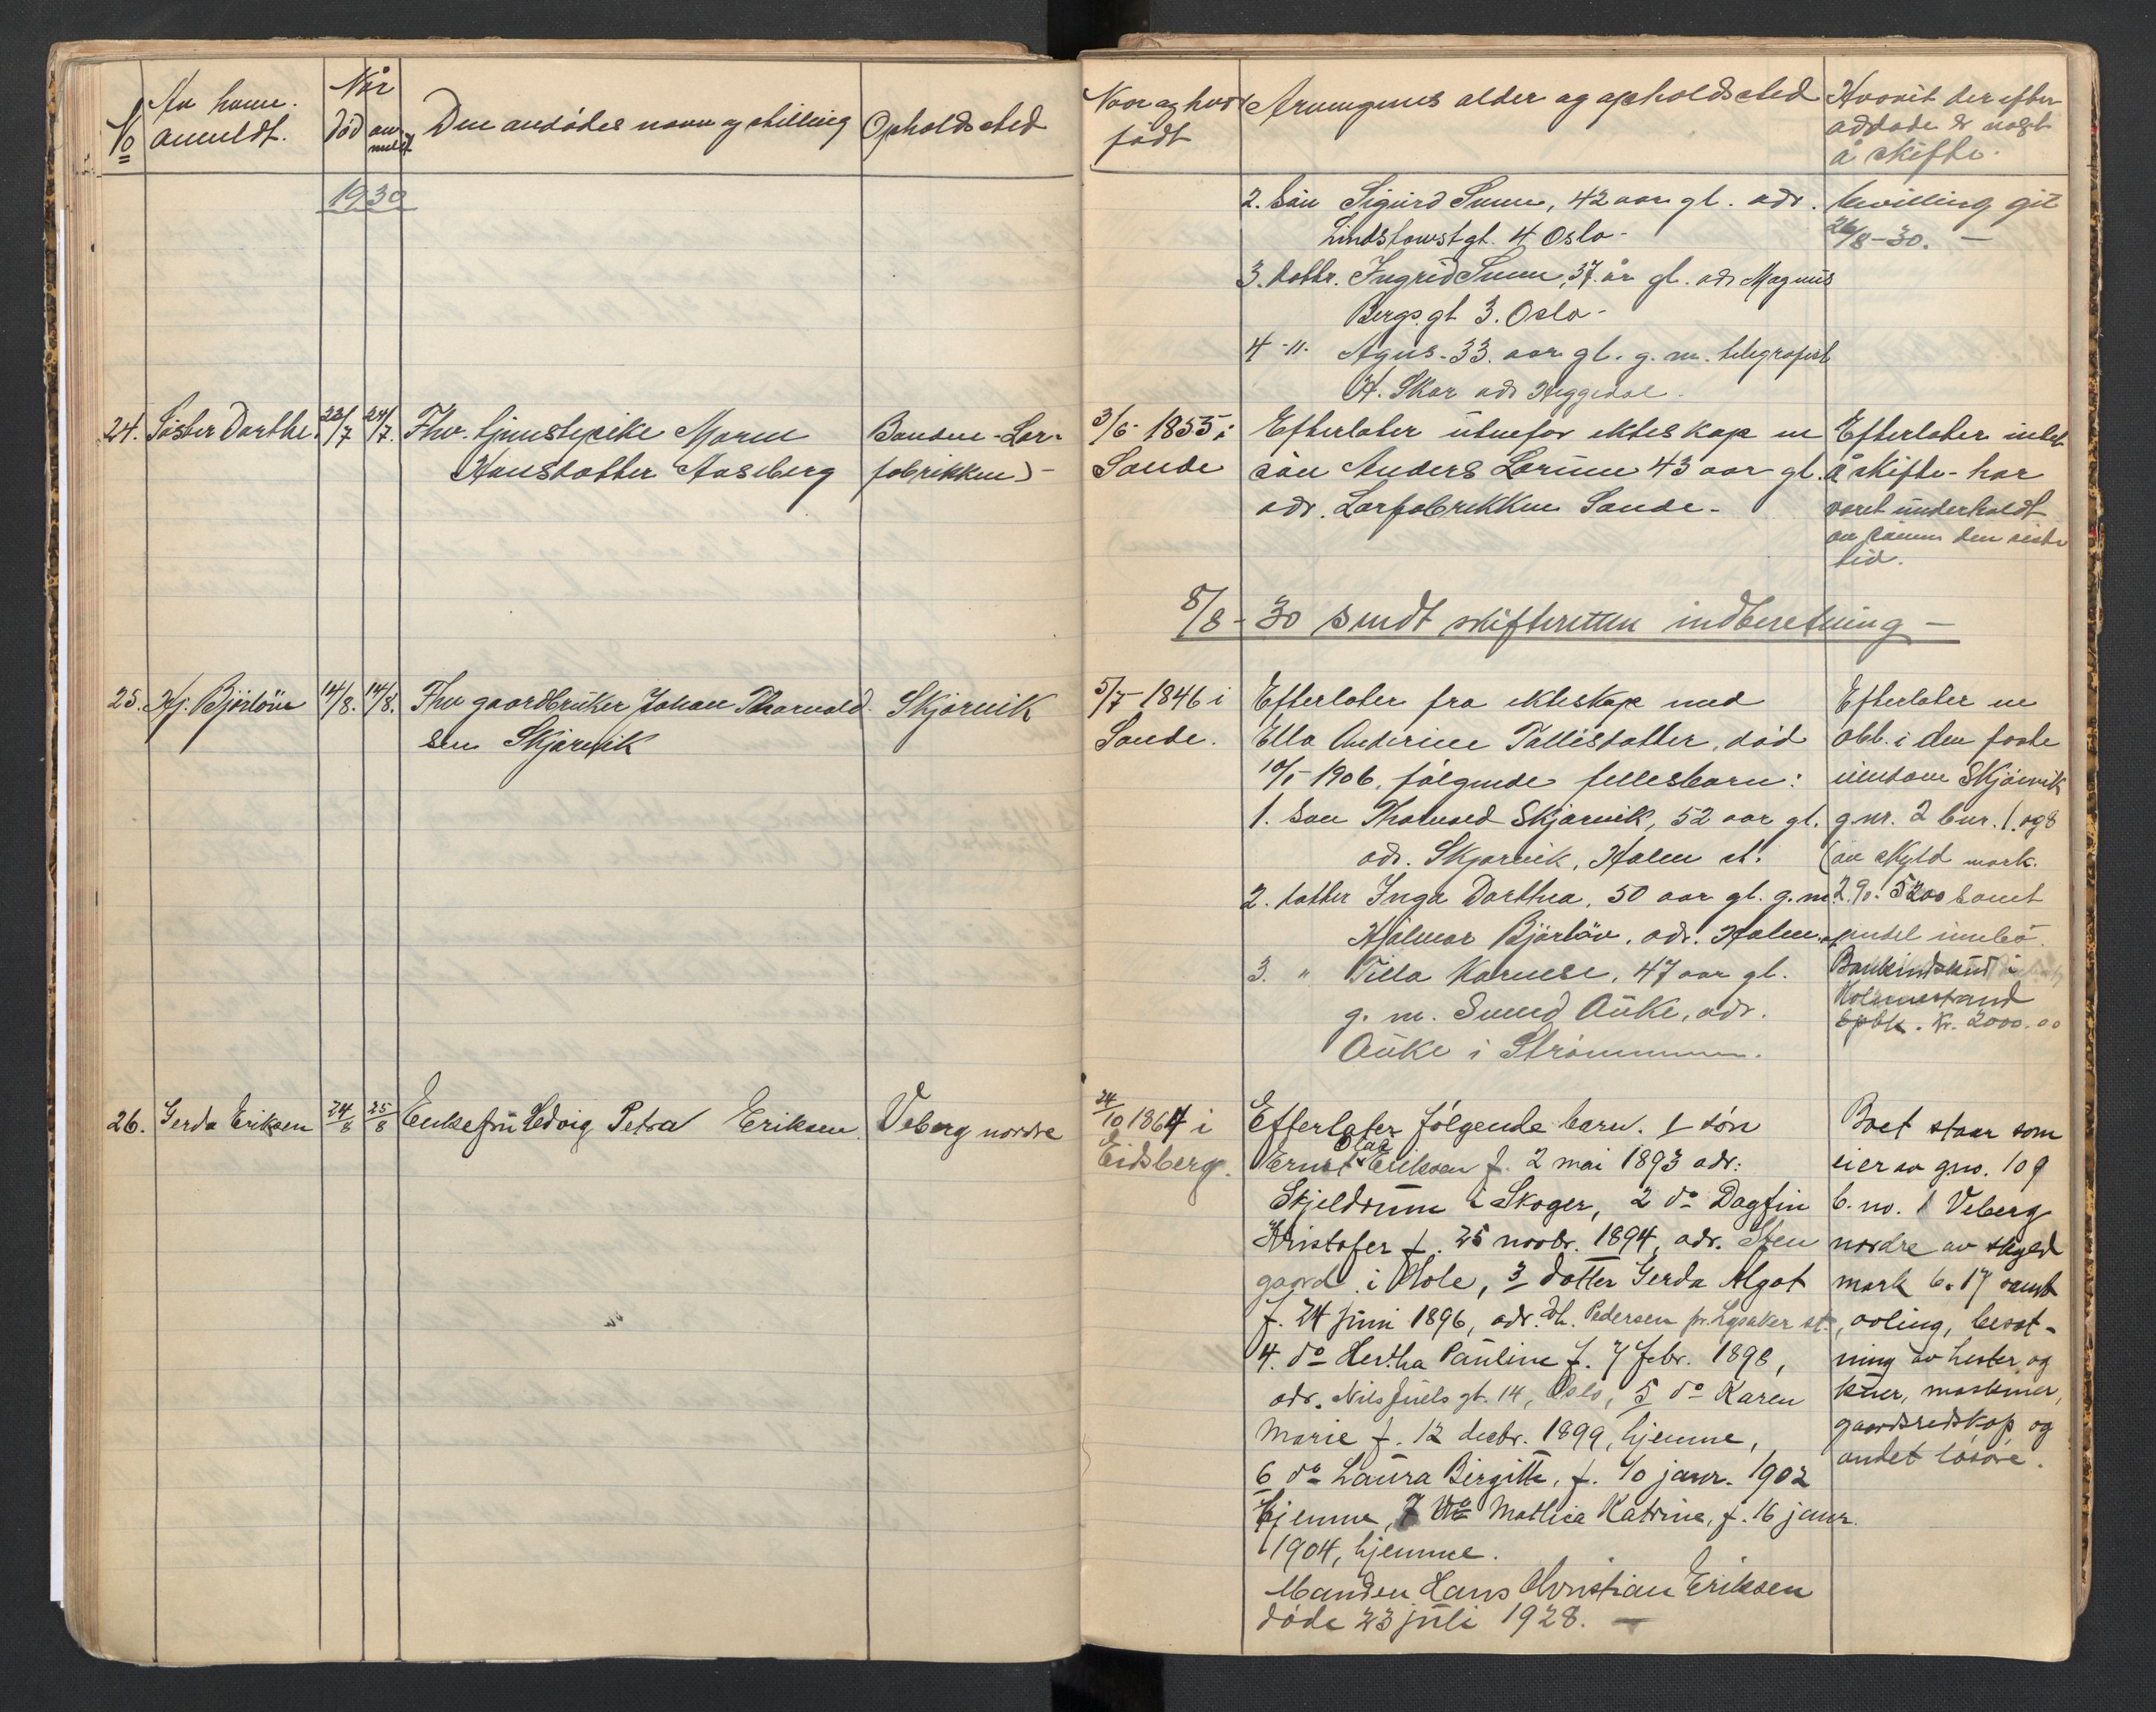 No
Av hvem
anmeldt.
Når
død
anmeldt
Den avdødes navn og stilling
Opholdssted
Naar og hvor
født
Arvingenes alder og opholdssted
Hvorvit der efter
avdøde er noget
å skifte.
1930
2. Søn Sigurd Sunn, 42 aar gl. adr.
Lindstowstgt. 4 Oslo-
3. datter. Ingrid Sunn, 37. år gl. adr Magnus
Bergs.gt 3. Oslo-
4 -"- Agnes-33. aar gl. g. m. telegrafist
H. Skar adr Heggedal.
bevilling git
26/8-30. -
24. Søster Dorthe.
22/7
24/7.
Fhv. tjenestepike Maren
Hansdatter Aaseberg
Bonden - Lær-
fabrikken) -
3/6- 1855 i
Sande
Efterlater utenfor ekteskap en
søn Anders Larsen 43 aar gl.
adr. Lærfabrikken Sande-
Efterlater intet
å skifte- har
været underholdt
av sønnen den siste
tid.
8/8-30 sendt skifteretten indberetning -
25. Hj. Bjørløw
14/8.
14/8.
Fhv gaardbruker Johan Thorvald-
sen Skjørvik
Skjørvik
5/7- 1846 i
Sande.
Efterlater fra ekteskap med
Ella Andrine Tallisdatter, død
10/5-1906, følgende fellesbarn:
1. Søn Thorvald Skjørvik, 52 aar gl.
adr. Skjørvik, Holm st.
2. datter Inga Dorthea, 50 aar gl. g.m.
Hjalmar Bjørløw. adr. Holm.
3. " Tilla Karnelse, 47 aar gl.
g. m. Svend Auke, adr.
Auke i Strømmen.
Efterlater en
obl. i den faste
eiendom Skjørvik
g.nr. 2 bnr. 1. og 8
(av skyld mark.
2.90. 5200 samt
endel innbo.
Bankindskud i
Holmestrand
Spbk. kr. 2000.00
26. Gerda Eriksen
24/8
25/8
Enkefru Hedvig Petra Eriksen
Veberg nordre
24/10 1864 i
Eidsberg.
Efterlater følgende barn. 1 søn
Olaf
Ernst Eriksen f. 2 mai 1893 adr:
Skjeldrum i Skoger, 2 do Dagfin
Kristofer f. 25 novbr. 1894, adr. Sten
gaard i Hole, 3 datter Gerda Algot
f. 24 juni 1896, adr. Dh. Pedersen pr. Lysaker st.
4. do Hertha Pauline f. 7 febr. 1898,
adr. Nils Juels gt. 14, Oslo, 5 do Karen
Marie f. 12 decbr. 1899, hjemme,
6 do Laura Birgitte, f. 10 janr. 1902
hjemme, 7 do Mathea Katrine, f. 16 janr.
1904, hjemme.
Manden Hans Christian Eriksen
døde 23 juli 1928. -
Boet staar som
eier av g.no. 109
b. no. 1 Veberg
nordre av skyld
mark 6.17 samt
avling, besæt-
ning av hester og
kuer, maskiner,
gaardsredskap og
andet løsøre.